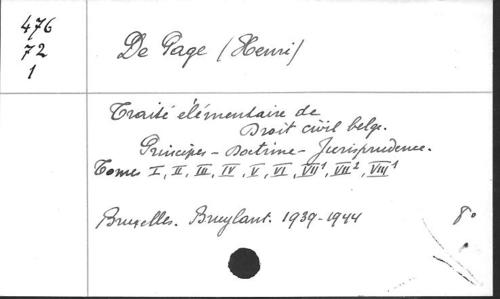 476
72
1
De Page (Henri)
Traité élémentaire de
Droit civil belge.
Principes - Doctrine - Jurisprudence.
Tomes I, II, III, IV, V, VI, VII¹, VII², VIII¹
Bruxelles. Bruylant. 1939-1944
8°